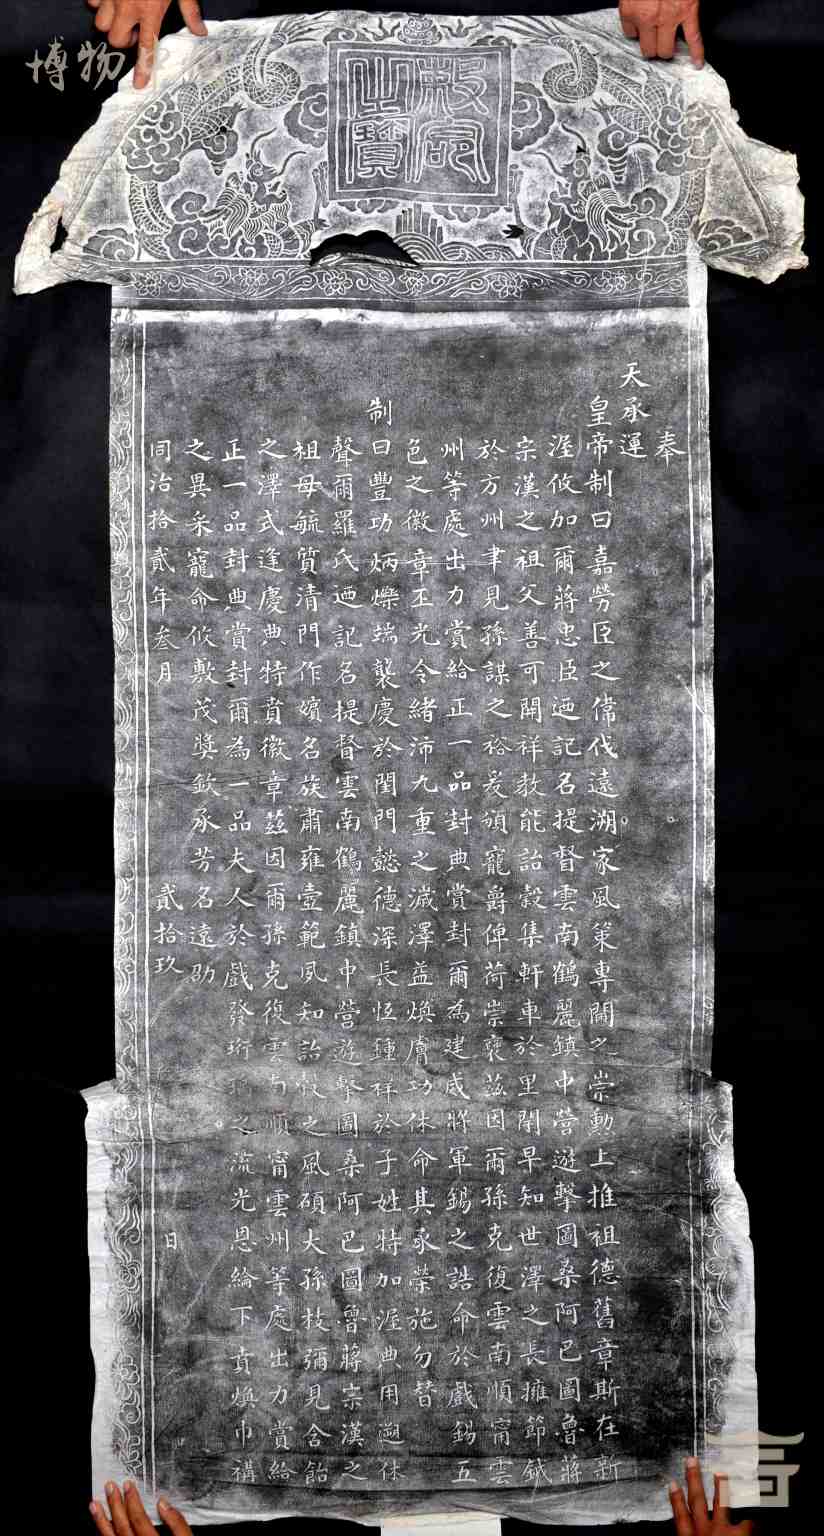 敕命之寶
博物中
奉
天承運
皇帝制曰嘉勞臣之偉伐遠溯家風策專閫之崇勳上推祖德舊章斯在新
渥攸加爾蔣忠臣迺記名提督雲南鶴麗鎮中營遊擊圖桑阿巴圖魯蔣
宗漢之祖父善可開祥教能詒穀集軒車於里閈早知世澤之長擁節鉞
於方州聿見孫謀之裕爰頒寵爵俾荷崇褒茲因爾孫克復雲南順甯雲
州等處出力賞給正一品封典賞封爾為建威將軍錫之誥命於戲錫五
色之徽章丕光令緒沛九重之濊澤益煥膚功休命其承榮施勿替
制曰豐功炳爍端襲慶於閨門懿德深長恒鍾祥於子姓特加渥典用遡休
聲爾羅氏迺記名提督雲南鶴麗鎮中營遊擊圖桑阿巴圖魯蔣宗漢之
祖母毓質清門作嬪名族肅雍壼範夙知詒穀之風碩大孫枝彌見含飴
之澤式逢慶典特賁徽章茲因爾孫克復雲南順甯雲州等處出力賞給
正一品封典賞封爾為一品夫人於戲發珩之流光恩綸下賁煥巾褠
之異采寵命攸敷茂獎欽承芳名遠劭
同治拾貳年叁月 貳拾玖 日